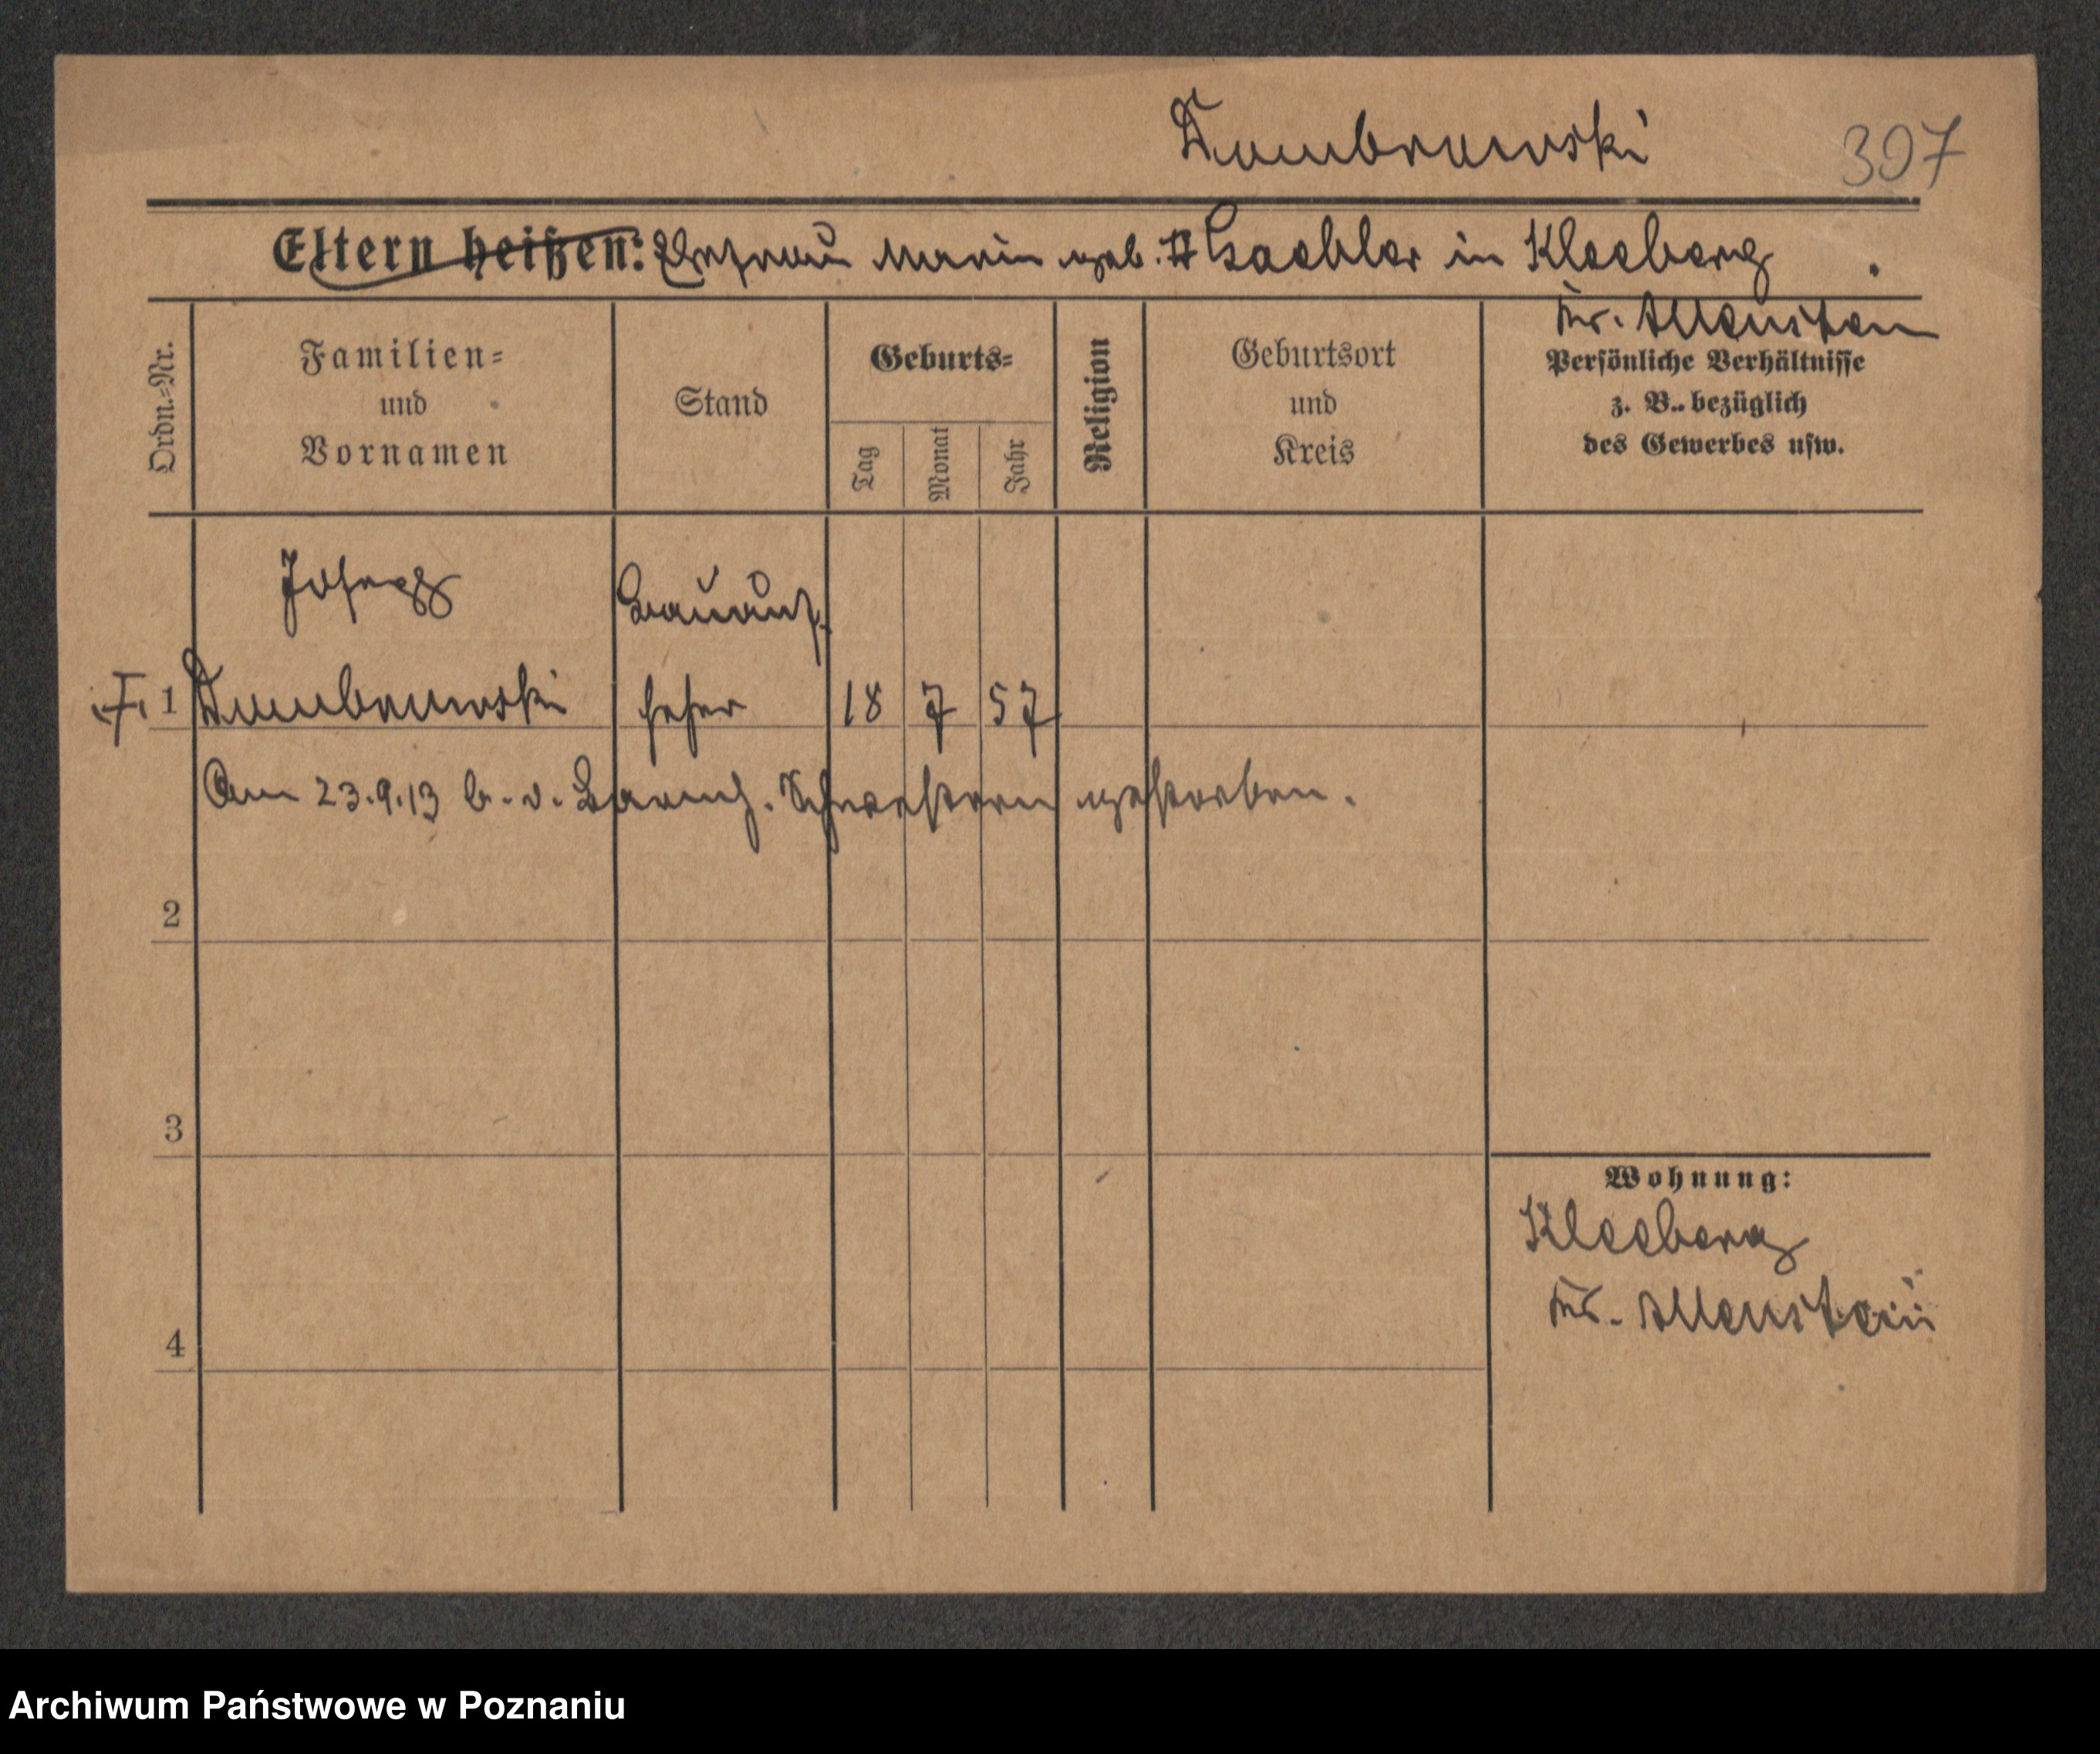 Dombrowski 397
Eltern heißen: Ehefrau Maria geb. Gaebler in Kleeberg
Kr. Allenstein
Ordn.-Nr.
Familien-
und
Vornamen
Stand
Geburts-
Tag
Monat
Jahr
Religion
Geburtsort
und
Kreis
Persönliche Verhältnisse
z. B.. bezüglich
des Gewerbes usw.
Joseph Bauauf-
1 Dombrowski seher 18 7 57
Am 23.9.13 b. d. Barmh. Schwestern gestorben.
2
3
4
Wohnung:
Kleeberg
Kr. Allenstein
Archiwum Państwowe w Poznaniu